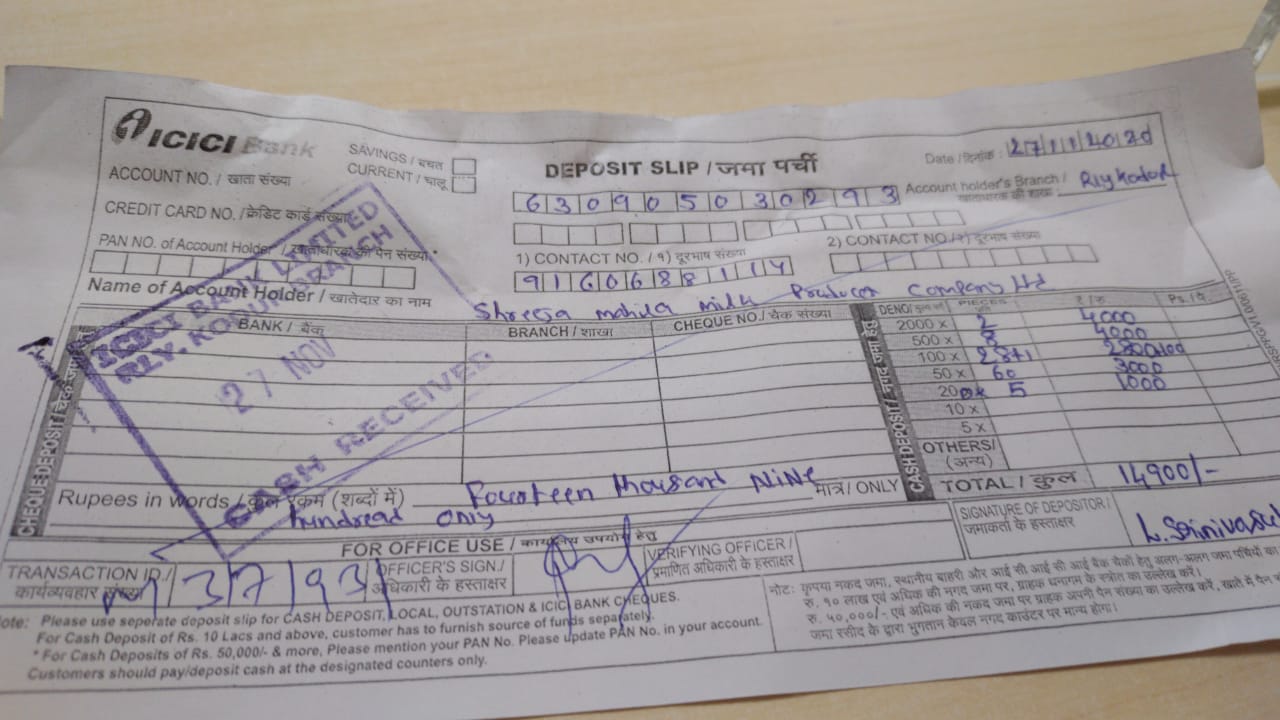 ICICI Bank
SAVINGS / बचत
CURRENT / चालू
DEPOSIT SLIP / जमा पर्ची
Date / दिनांक : 27112020
ACCOUNT NO. / खाता संख्या
630905030293
Account holder's Branch / Rly Kodur
खाताधारक की शाखा :
CREDIT CARD NO. / क्रेडिट कार्ड संख्या
PAN NO. of Account Holder* / खाताधारक की पैन संख्या *
1) CONTACT NO. / १) दूरभाष संख्या
2) CONTACT NO. / २) दूरभाष संख्या
9160688114
Name of Account Holder / खातेदार का नाम Shreeja mahila milk Producer Company Ltd
CHEQUE DEPOSIT /
BANK / बैंक
BRANCH / शाखा
CHEQUE NO. / चैक संख्या
CASH DEPOSIT / नकद जमा
PIECES
₹ / रु.
Ps. / पै
2000 x 2 4000
500 x 8 4000
100 x 28+1 2800+100
50 x 60 3000
200x 5 1000
10 x
5 x
OTHERS/
(अन्य)
TOTAL / कुल 14900/-
ICICI BANK LIMITED
RLY. KODUR BRANCH
27 NOV
CASH RECEIVED
Rupees in words / कुल रकम (शब्दों में) Fourteen thousand NiNe मात्र / ONLY
hundread only
SIGNATURE OF DEPOSITOR /
जमाकर्ता के हस्ताक्षर
L. Srinivasul
FOR OFFICE USE / कार्यालय उपयोग हेतु
TRANSACTION ID. /
कार्यव्यवहार संख्या
OFFICER'S SIGN. /
अधिकारी के हस्ताक्षर
VERIFYING OFFICER /
प्रमाणित अधिकारी के हस्ताक्षर
Note: Please use seperate deposit slip for CASH DEPOSIT, LOCAL, OUTSTATION & ICICI BANK CHEQUES.
For Cash Deposit of Rs. 10 Lacs and above, customer has to furnish source of funds separately.
* For Cash Deposits of Rs. 50,000/- & more, Please mention your PAN No. Please update PAN No. in your account.
Customers should pay/deposit cash at the designated counters only.
नोट: कृपया नकद जमा, स्थानीय बाहरी और आई सी आई सी आई बैंक चैकों हेतु अलग-अलग जमा पर्चियों का
रु. १० लाख एवं अधिक की नगद जमा पर, ग्राहक धनागम के स्त्रोत का उल्लेख करें.
रु. ५०,०००/- एवं अधिक की नकद जमा पर ग्राहक अपनी पैन संख्या का उल्लेख करें, खाते में पैन
जमा रसीद के द्वारा भुगतान केवल नगद काउंटर पर मान्य होगा।